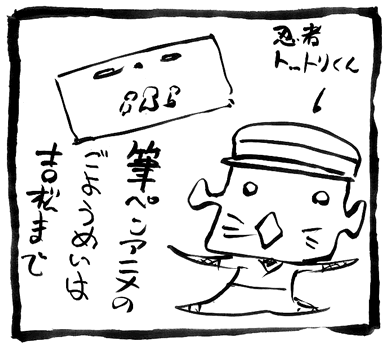 忍者
トットリくん
筆ペンアニメの
ごようめいは
吉松まで